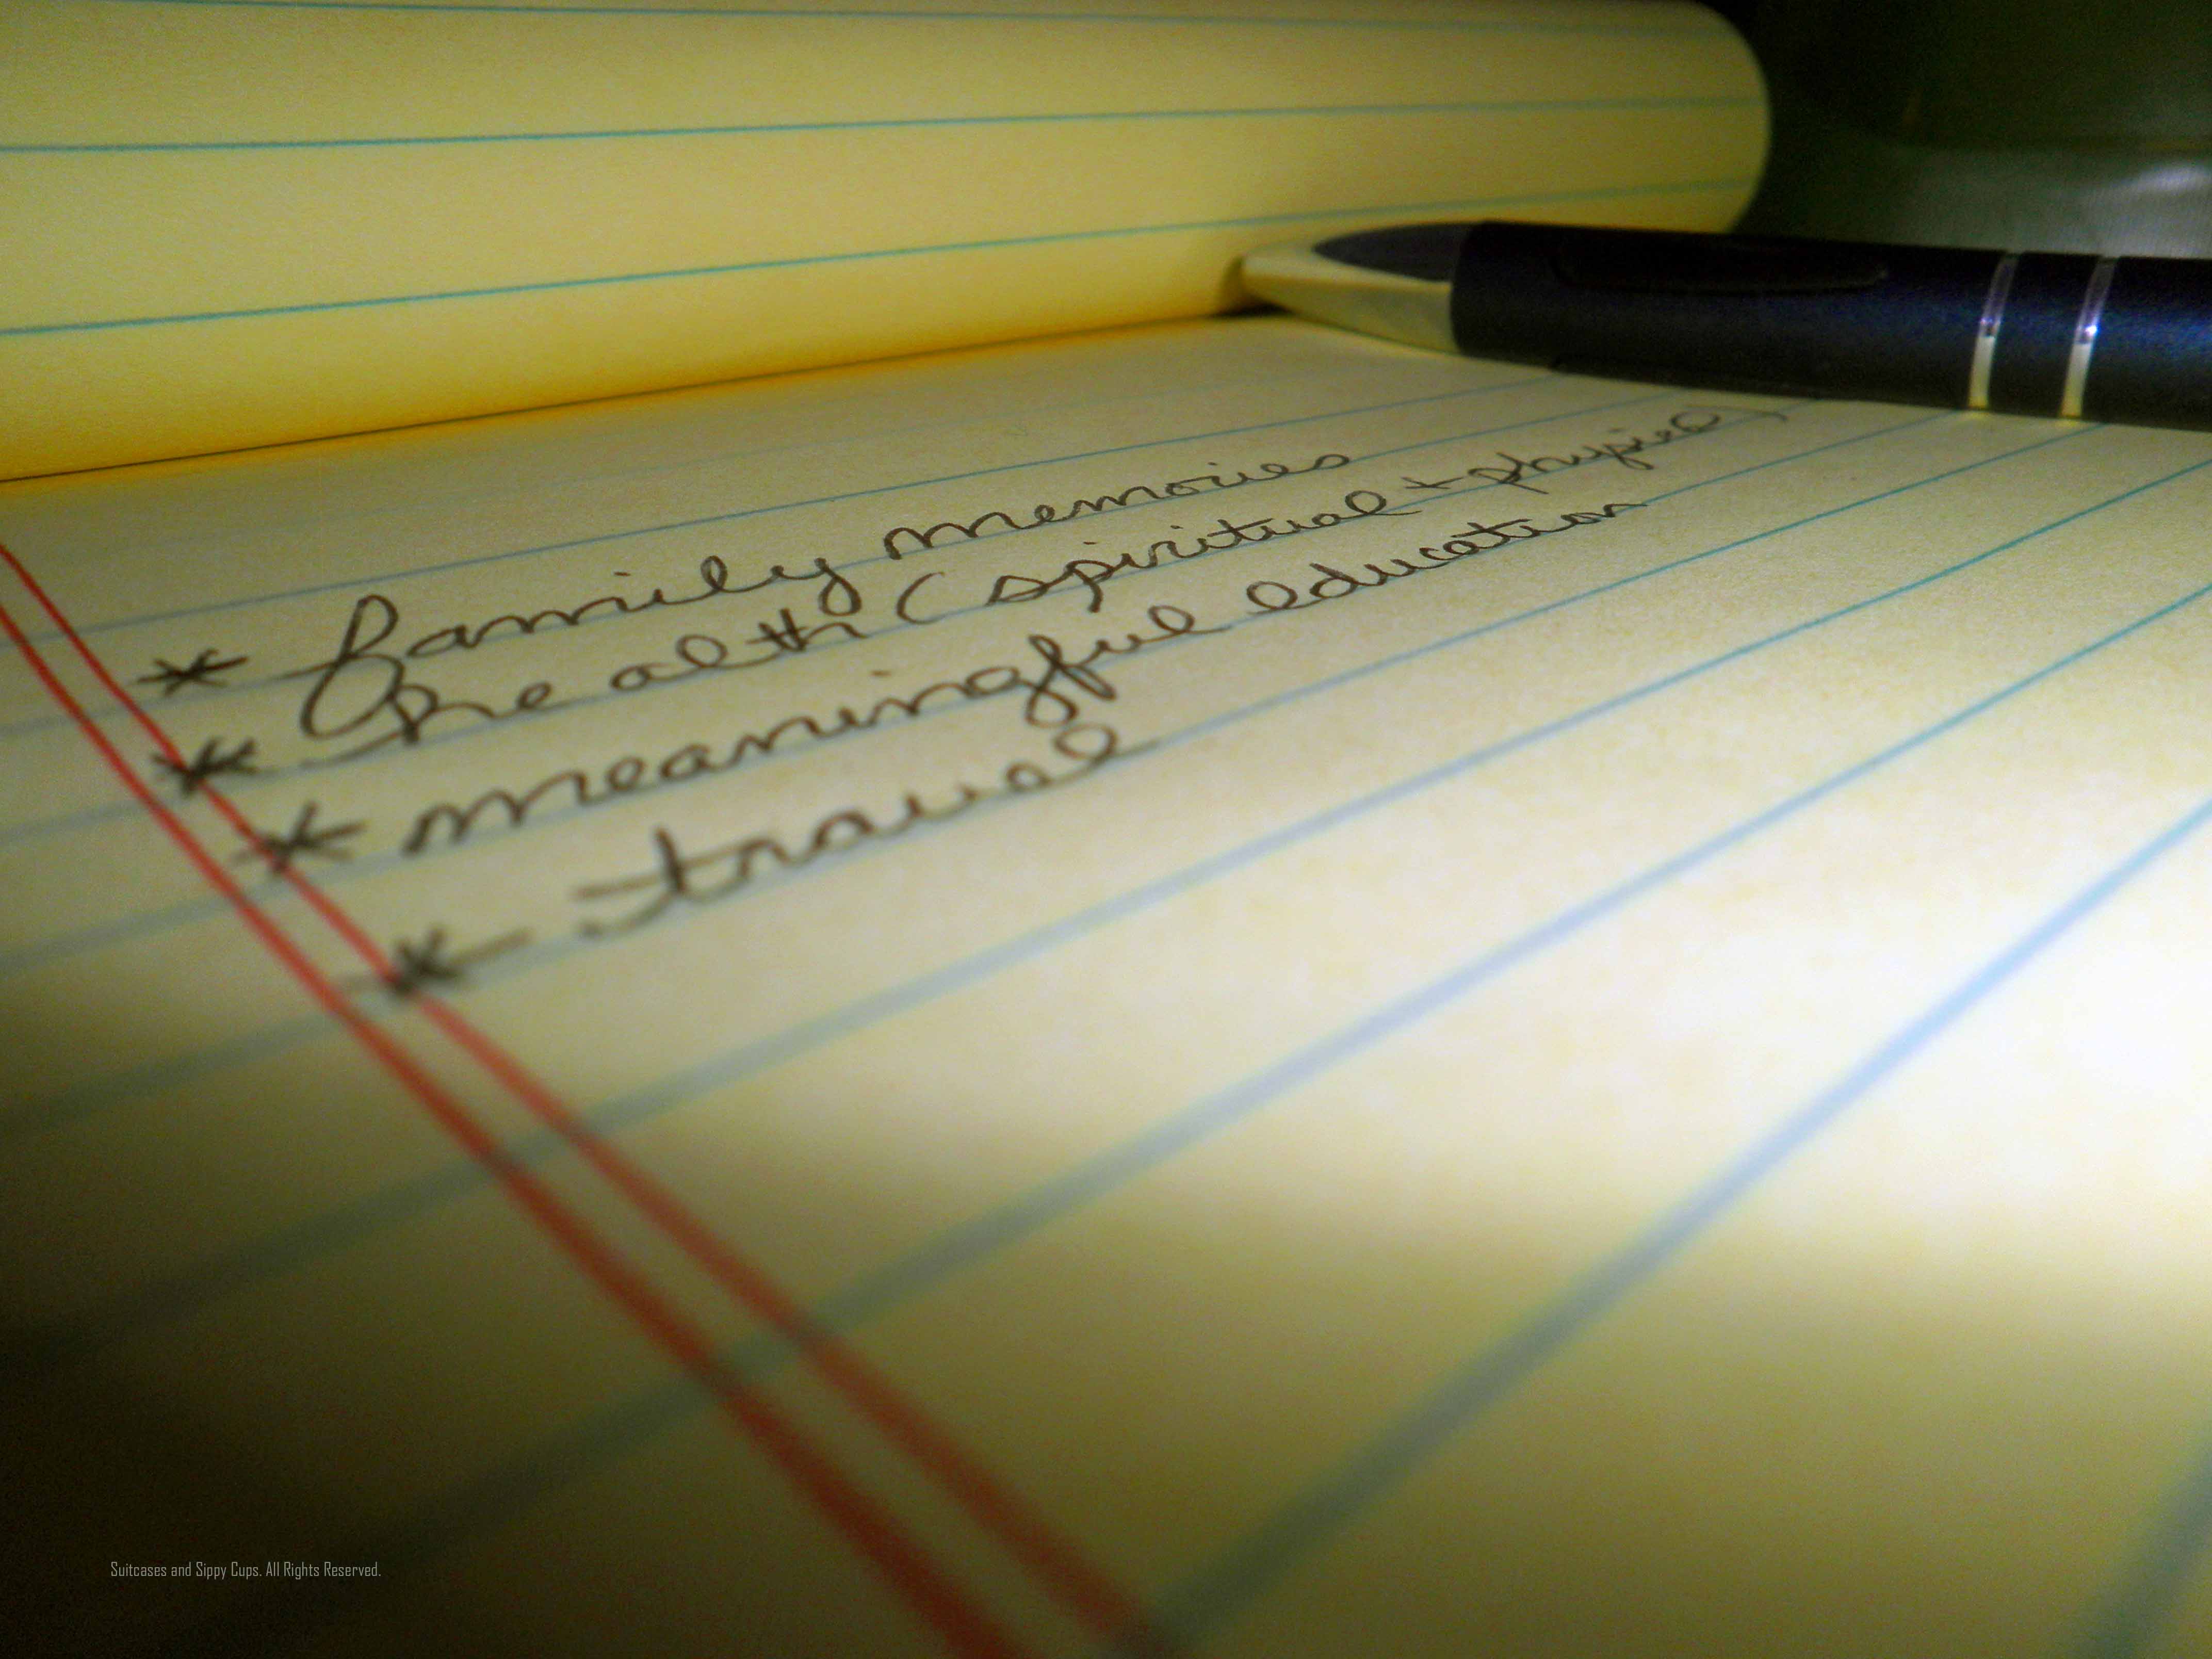 * family memories
* health (spiritual + physical)
* meaningful education
* travel
Suitcases and Sippy Cups. All Rights Reserved.